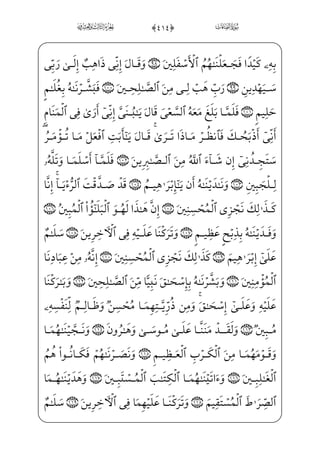 سُورَةُ الصَّافَّاتِ ﴿٤١٤﴾ الجُزْءُ الثَّالِثُ وَالعِشْرُونَ
بِهِۦ كَيْدًا فَجَعَلْنَٰهُمُ ٱلْأَسْفَلِينَ ۝٩٨ وَقَالَ إِنِّى ذَاهِبٌ إِلَىٰ رَبِّى
سَيَهْدِينِ ۝٩٩ رَبِّ هَبْ لِى مِنَ ٱلصَّٰلِحِينَ ۝١٠٠ فَبَشَّرْنَٰهُ بِغُلَٰمٍ
حَلِيمٍ ۝١٠١ فَلَمَّا بَلَغَ مَعَهُ ٱلسَّعْىَ قَالَ يَٰبُنَىَّ إِنِّىٓ أَرَىٰ فِى ٱلْمَنَامِ
أَنِّىٓ أَذْبَحُكَ فَٱنظُرْ مَاذَا تَرَىٰ ۚ قَالَ يَٰٓأَبَتِ ٱفْعَلْ مَا تُؤْمَرُ ۖ
سَتَجِدُنِىٓ إِن شَآءَ ٱللَّهُ مِنَ ٱلصَّٰبِرِينَ ۝١٠٢ فَلَمَّآ أَسْلَمَا وَتَلَّهُۥ
لِلْجَبِينِ ۝١٠٣ وَنَٰدَيْنَٰهُ أَن يَٰٓإِبْرَٰهِيمُ ۝١٠٤ قَدْ صَدَّقْتَ ٱلرُّءْيَآ ۚ إِنَّا
كَذَٰلِكَ نَجْزِى ٱلْمُحْسِنِينَ ۝١٠٥ إِنَّ هَٰذَا لَهُوَ ٱلْبَلَٰٓؤُا۟ ٱلْمُبِينُ ۝١٠٦
وَفَدَيْنَٰهُ بِذِبْحٍ عَظِيمٍ ۝١٠٧ وَتَرَكْنَا عَلَيْهِ فِى ٱلْءَاخِرِينَ ۝١٠٨ سَلَٰمٌ
عَلَىٰٓ إِبْرَٰهِيمَ ۝١٠٩ كَذَٰلِكَ نَجْزِى ٱلْمُحْسِنِينَ ۝١١٠ إِنَّهُۥ مِنْ عِبَادِنَا
ٱلْمُؤْمِنِينَ ۝١١١ وَبَشَّرْنَٰهُ بِإِسْحَٰقَ نَبِيًّا مِّنَ ٱلصَّٰلِحِينَ ۝١١٢ وَبَٰرَكْنَا
عَلَيْهِ وَعَلَىٰٓ إِسْحَٰقَ ۚ وَمِن ذُرِّيَّتِهِمَا مُحْسِنٌ وَظَالِمٌ لِّنَفْسِهِۦ
مُبِينٌ ۝١١٣ وَلَقَدْ مَنَنَّا عَلَىٰ مُوسَىٰ وَهَٰرُونَ ۝١١٤ وَنَجَّيْنَٰهُمَا
وَقَوْمَهُمَا مِنَ ٱلْكَرْبِ ٱلْعَظِيمِ ۝١١٥ وَنَصَرْنَٰهُمْ فَكَانُوا۟ هُمُ
ٱلْغَٰلِبِينَ ۝١١٦ وَءَاتَيْنَٰهُمَا ٱلْكِتَٰبَ ٱلْمُسْتَبِينَ ۝١١٧ وَهَدَيْنَٰهُمَا
ٱلصِّرَٰطَ ٱلْمُسْتَقِيمَ ۝١١٨ وَتَرَكْنَا عَلَيْهِمَا فِى ٱلْءَاخِرِينَ ۝١١٩ سَلَٰمٌ